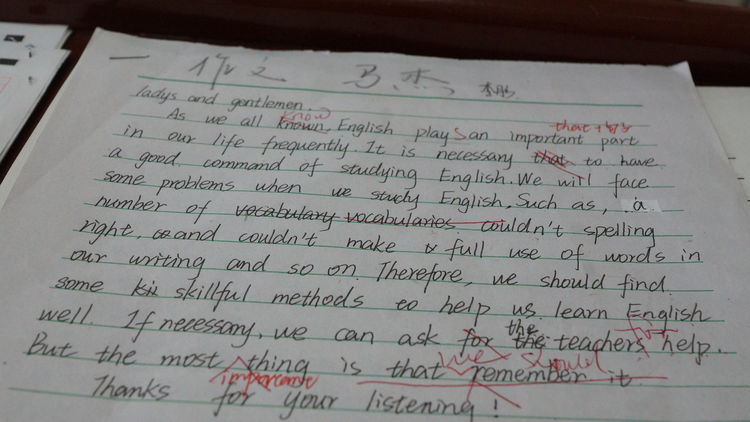 一 作文 马杰
ladys and gentlemen.
know
As we all known, English plays an important part
in our life frequently. It is necessary that to have
a good command of studying English. We will face
some problems when we study English. Such as, a
number of vocabulary vocabularies couldn't spelling
right, and couldn't make full use of words in
our writing and so on. Therefore, we should find
some skillful methods to help us learn English
well. If necessary, we can ask for the teachers help.
the
for
But the most thing is that remember it.
important
we should
Thanks for your listening!